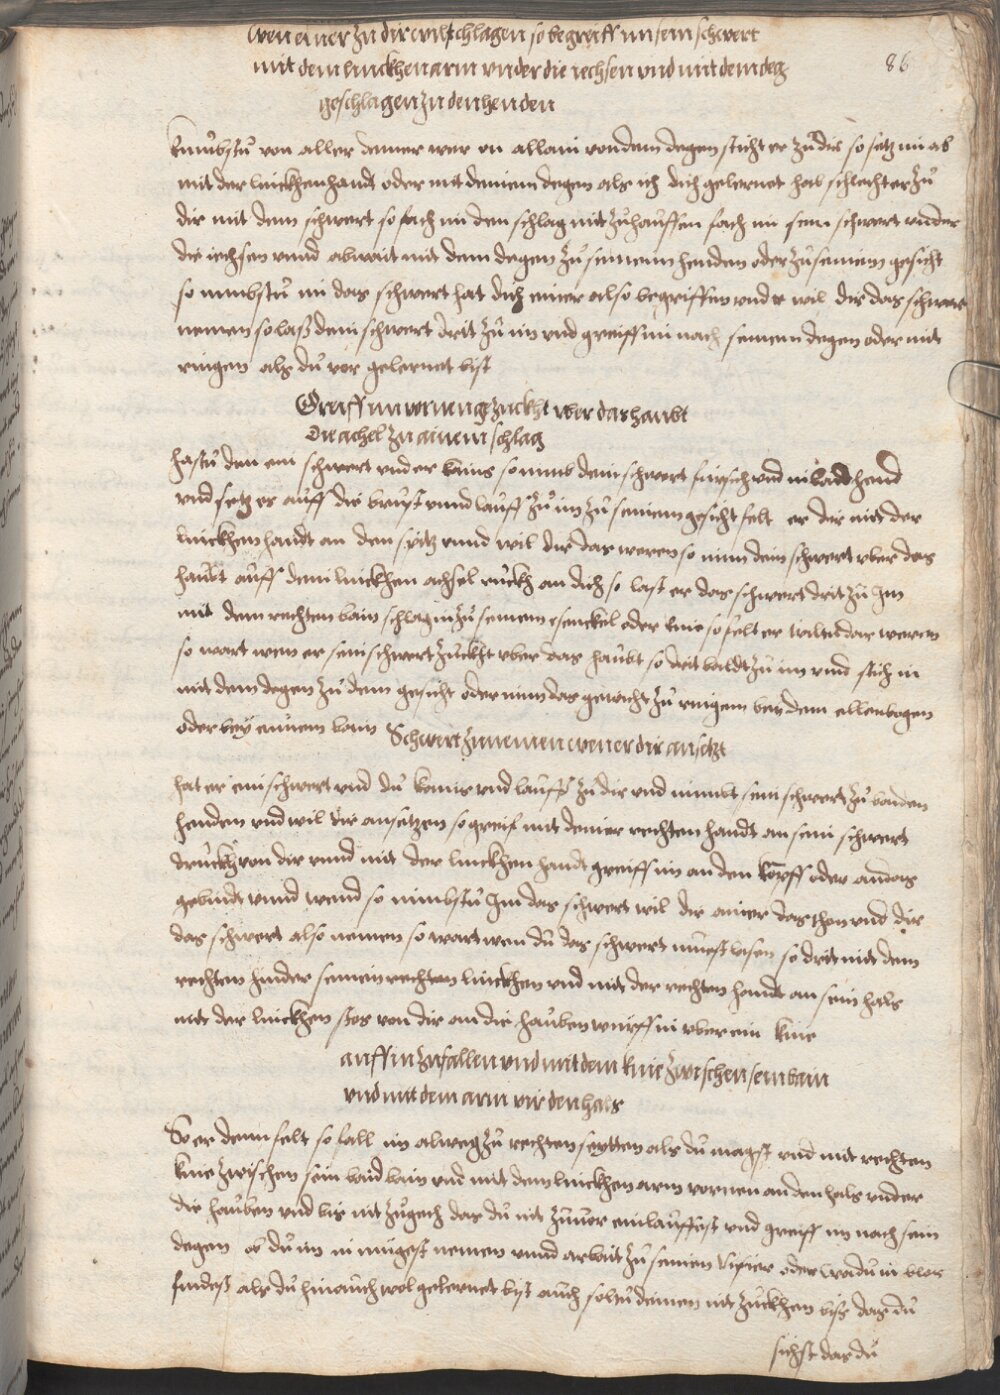 wen einer zu dir wil schlagen so begreiff im sein schwert
mit dem linckhen arm under die iechsen und mit dem deg
86
geschlagen zu den henden
kumbstu von aller deiner wer on allain von dem degen sticht er zu dir so setz im ab
mit der linckhen handt oder mit deinem degen als ich dich gelernet hab schlecht er zu
dir mit dem schwert so fach im den schlag mit zuhauffen fach im sein schwert under
die iechsen unnd arbait mit dem degen zu seinenn henden oder zu seinem gesicht
so nimbstu im das schwert hat dich einer also begriffen und er wil dir das schwert
nemen so lasz dein schwert drit zu im und greiff im nach seinem degen oder mit
ringen als du vor gelernet bist
Greiff im wer uber das haubt
die achel zu ainem schlag
hastu den ein schwert und er kains so nimb dein schwert fur sich und in baid hend
und setz es auff die brust unnd lauff zu im zu seinem gesicht felt er dir mit der
linckhen handt an den spitz unnd wil dir das weren so nim dein schwert uber das
haubt auff dein linckhen achsel ruckh an dich so last er das schwert drit zu Im
mit dem rechten bain schlag in zu seinem schenckel oder knie so felt er wiltu das weren
so wart wen er sein schwert zuckht uber das haubt so drit baldt zu im und stich in
mit dem degen zu dem gesicht oder nim das gewicht zu ringen bey dem ellenbogen
oder bey ainem bain Schwert zu nemen wen er dir ansetzt
hat er ein schwert und du kains und laufft zu dir und nimbt sein schwert zu baiden
henden und wil dir ansetzen so greif mit deiner rechten handt an sein schwert
druckh von dir unnd mit der linckhen handt greiff im an den knopff oder an das
gebindt unnd wend so nimbstu Im das schwert wil dir ainer das thon und dir
das schwert also nemen so wart wen du das schwert muest lasen so drit mit dem
rechten hinder seinen rechten linckhen und mit der rechten handt an sein hals
mit der linckhen stos von dir an die hauben wurff in uber ein knie
auff in zu fallen und mit dem knie zwischen sein bain
und mit dem arm vir den hals
So er denn felt so fall im alweg zu rechten seytten als du magst und mit rechten
knie zwischen sein baid bain und mit dem linckhen arm vornen an den hals under
die hauben und bis nit zu gech das du nit zuvor einlauffest und greiff im nach sein
degen ob du im in mugest nemen unnd arbait zu seinem visier oder wo du in blos
findest als du hinauch wol gelernet bist auch soltu deinen nit zuckhen bisz das du
sichst das du